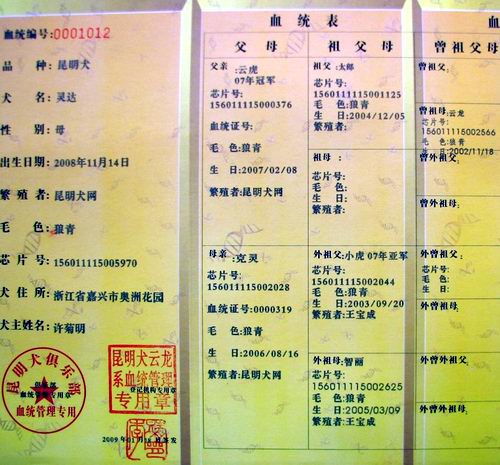 血统编号:0001012
品 种:昆明犬
犬 名:灵达
性 别:母
出生日期:2008年11月14日
繁殖者:昆明犬网
毛 色:狼青
芯片号:156011115005970
犬住所:浙江省嘉兴市奥洲花园
犬主姓名:许菊明
昆明犬俱乐部
血统管理专用章
血统管理专用
昆明犬云龙
系血统管理
登记机构专用章
专用章
血统表
父母
父亲:云虎
07年冠军
芯片号:
156011115000376
血统证号:
毛 色:狼青
生 日:2007/02/08
繁殖者:昆明犬网
母亲:克灵
芯片号:
156011115002028
血统证号:0000319
毛 色:狼青
生 日:2006/08/16
繁殖者:昆明犬网
祖父母
祖父:太郎
芯片号:
156011115001125
毛 色:狼青
生 日:2004/12/05
繁殖者:
祖母:
芯片号:
毛 色:
生 日:
繁殖者:
外祖父:小虎 07年亚军
芯片号:
156011115002044
毛 色:狼青
生 日:2003/09/20
繁殖者:王宝成
外祖母:智丽
芯片号:
156011115002625
毛 色:狼青
生 日:2005/03/09
繁殖者:王宝成
曾祖父母
曾祖父:
曾祖母:云龙
芯片号:
156011115002566
毛 色:狼青
生 日:2002/11/18
曾外祖父:
曾外祖母:
曾外祖父:
芯片号:
毛 色:
生 日:
曾外祖母:
曾外曾外祖父:
曾外曾外祖母: